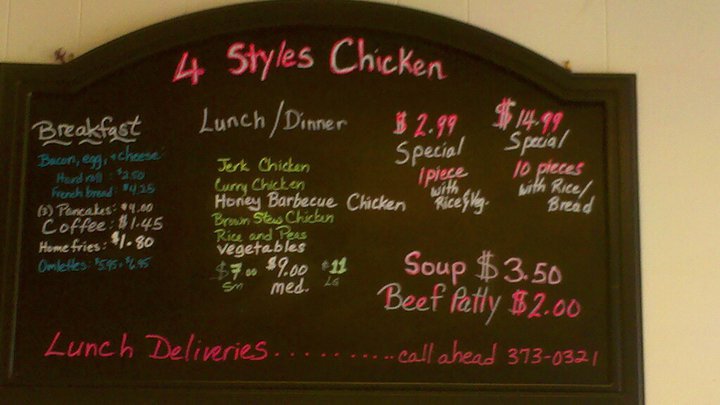 4 Styles Chicken
Breakfast
Bacon, egg, + cheese
Hard roll : $2.50
French bread : $4.25
(3) Pancakes: $4.00
Coffee : $1.45
Home fries : $1.80
Omlettes: $5.95 + $6.95
Lunch/Dinner
Jerk Chicken
Curry Chicken
Honey Barbecue Chicken
Brown Stew Chicken
Rice and Peas
vegetables
$7.00 $9.00 $11
Sm med. LG
$2.99
Special
1 piece
with
Rice & Vg.
$14.99
Special
10 pieces
with Rice/
Bread
Soup $3.50
Beef Patty $2.00
Lunch Deliveries..........call ahead 373-0321